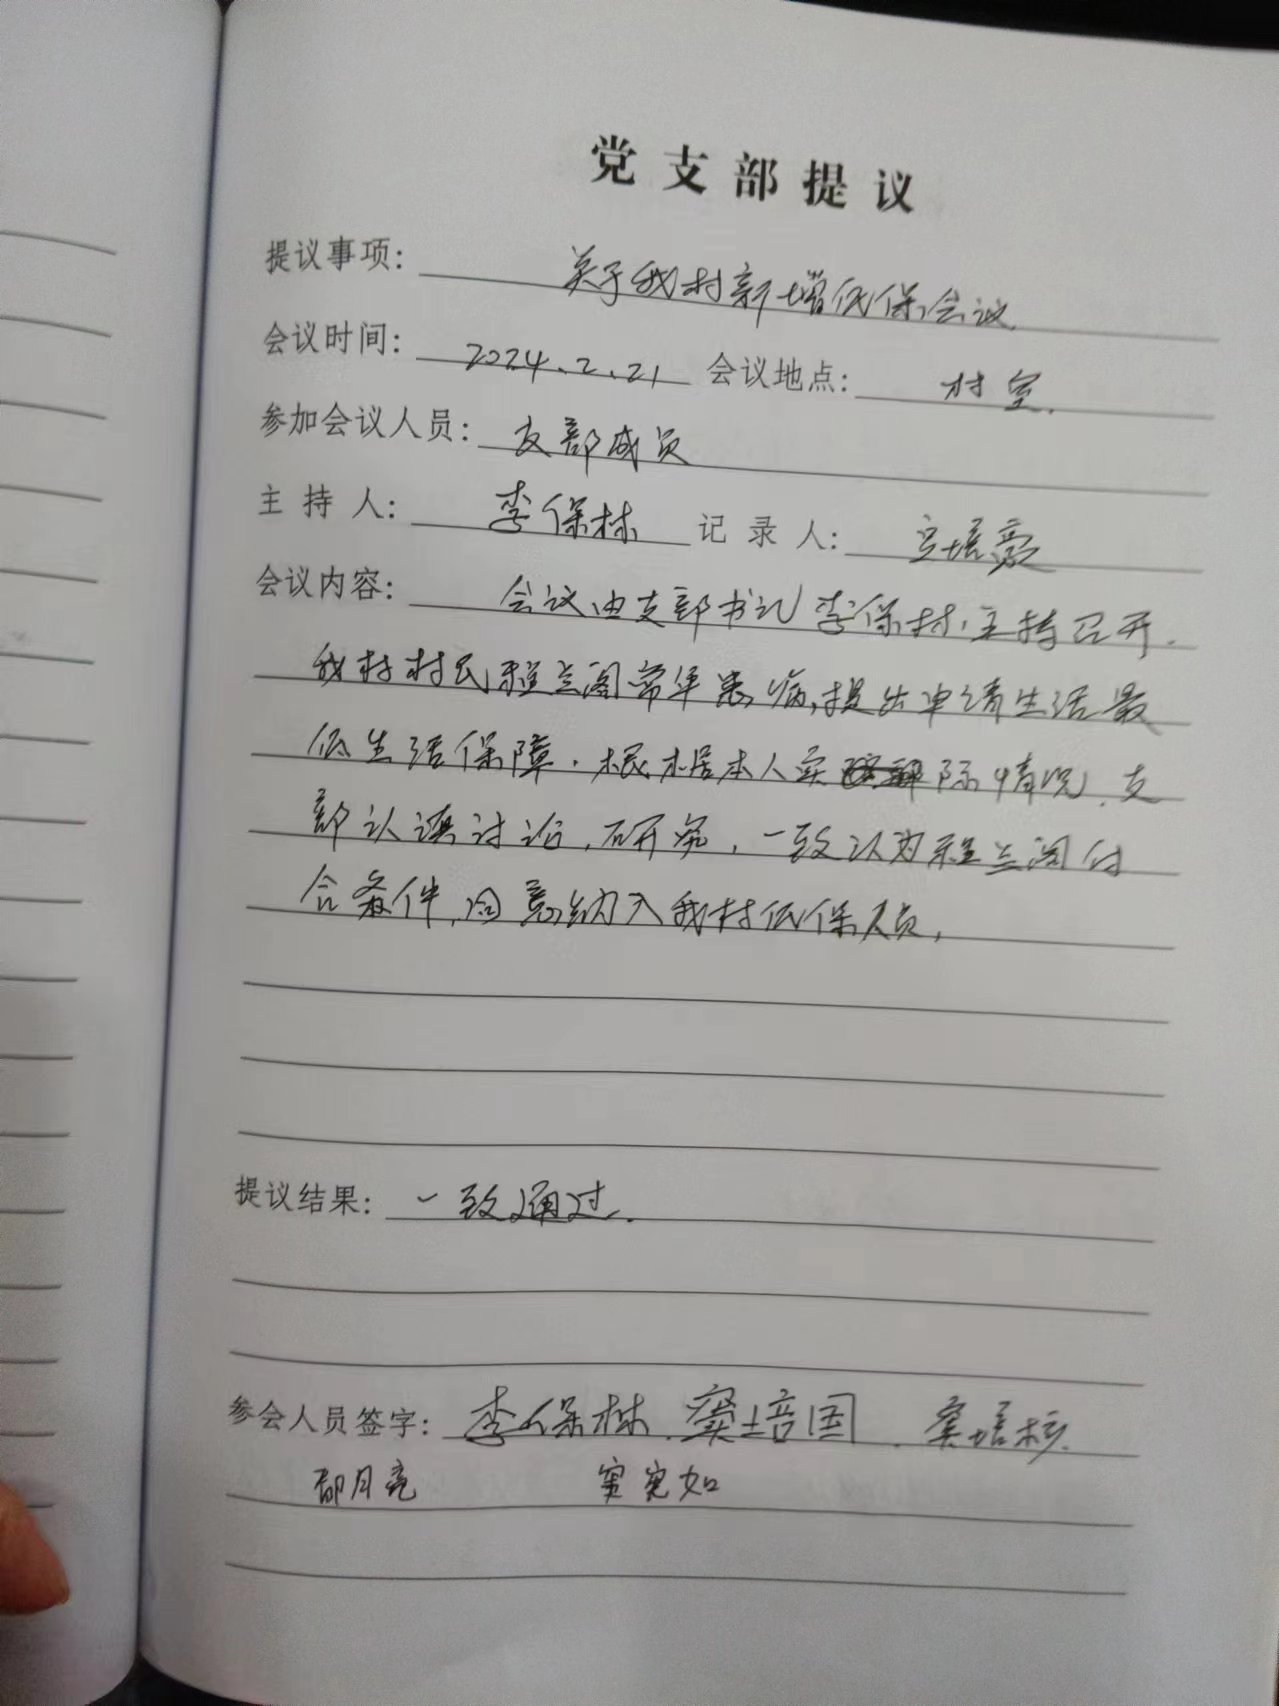 党支部提议
提议事项: 关于我村新增低保会议
会议时间: 2024.2.21 会议地点: 村室.
参加会议人员: 支部成员
主持人: 李保林 记录人: 培豪
会议内容: 会议由支部书记李保林主持召开.
我村村民程兰阁常年患病,提出申请生活最
低生活保障.根据本人实际情况,支
部认真讨论,研究,一致认为程兰阁付
合条件,同意纳入我村低保人员,
提议结果: 一致通过.
参会人员签字: 李保林. 窦培国. 窦培
郜月亮 窦宪如